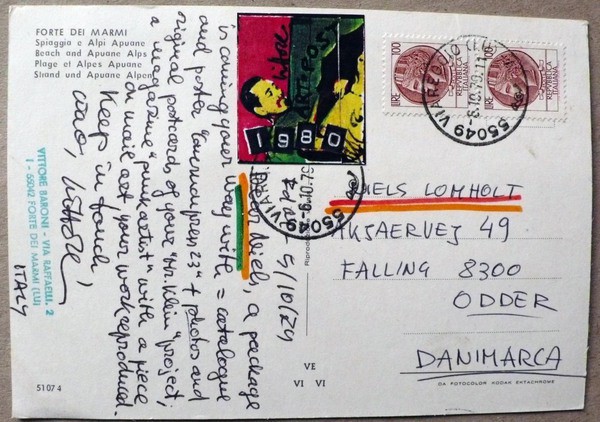 FORTE DEI MARMI
Spiaggia e Alpi Apuane
Beach and Apuane Alps
Plage et Alpes Apuane
Strand und Apuane Alpen
VITTORE BARONI - VIA RAFFAELLI, 2
I - 55042 FORTE DEI MARMI (LU)
ITALY
5/10/79
Dear Niels, a package
is coming your way with = catalogue
and poster "common press 23" + photos and
original postcards of your "Mr. Klein" project;
a magazine "punk artist" with a piece
on mail art your work reproduced.
Keep in touch,
ciao, Vittore
Vittore
ARTEPOST
1980
LIRE 100
REPUBBLICA ITALIANA
LIRE 100
REPUBBLICA ITALIANA
55049 VIAREGGIO (LU)
-8.10.79.11
55049 VIAREGGIO
-8.10.79
NIELS LOMHOLT
AKJAERVEJ 49
FALLING 8300
ODDER
DANIMARCA
VE
VI VI
DA FOTOCOLOR KODAK EKTACHROME
5107 4